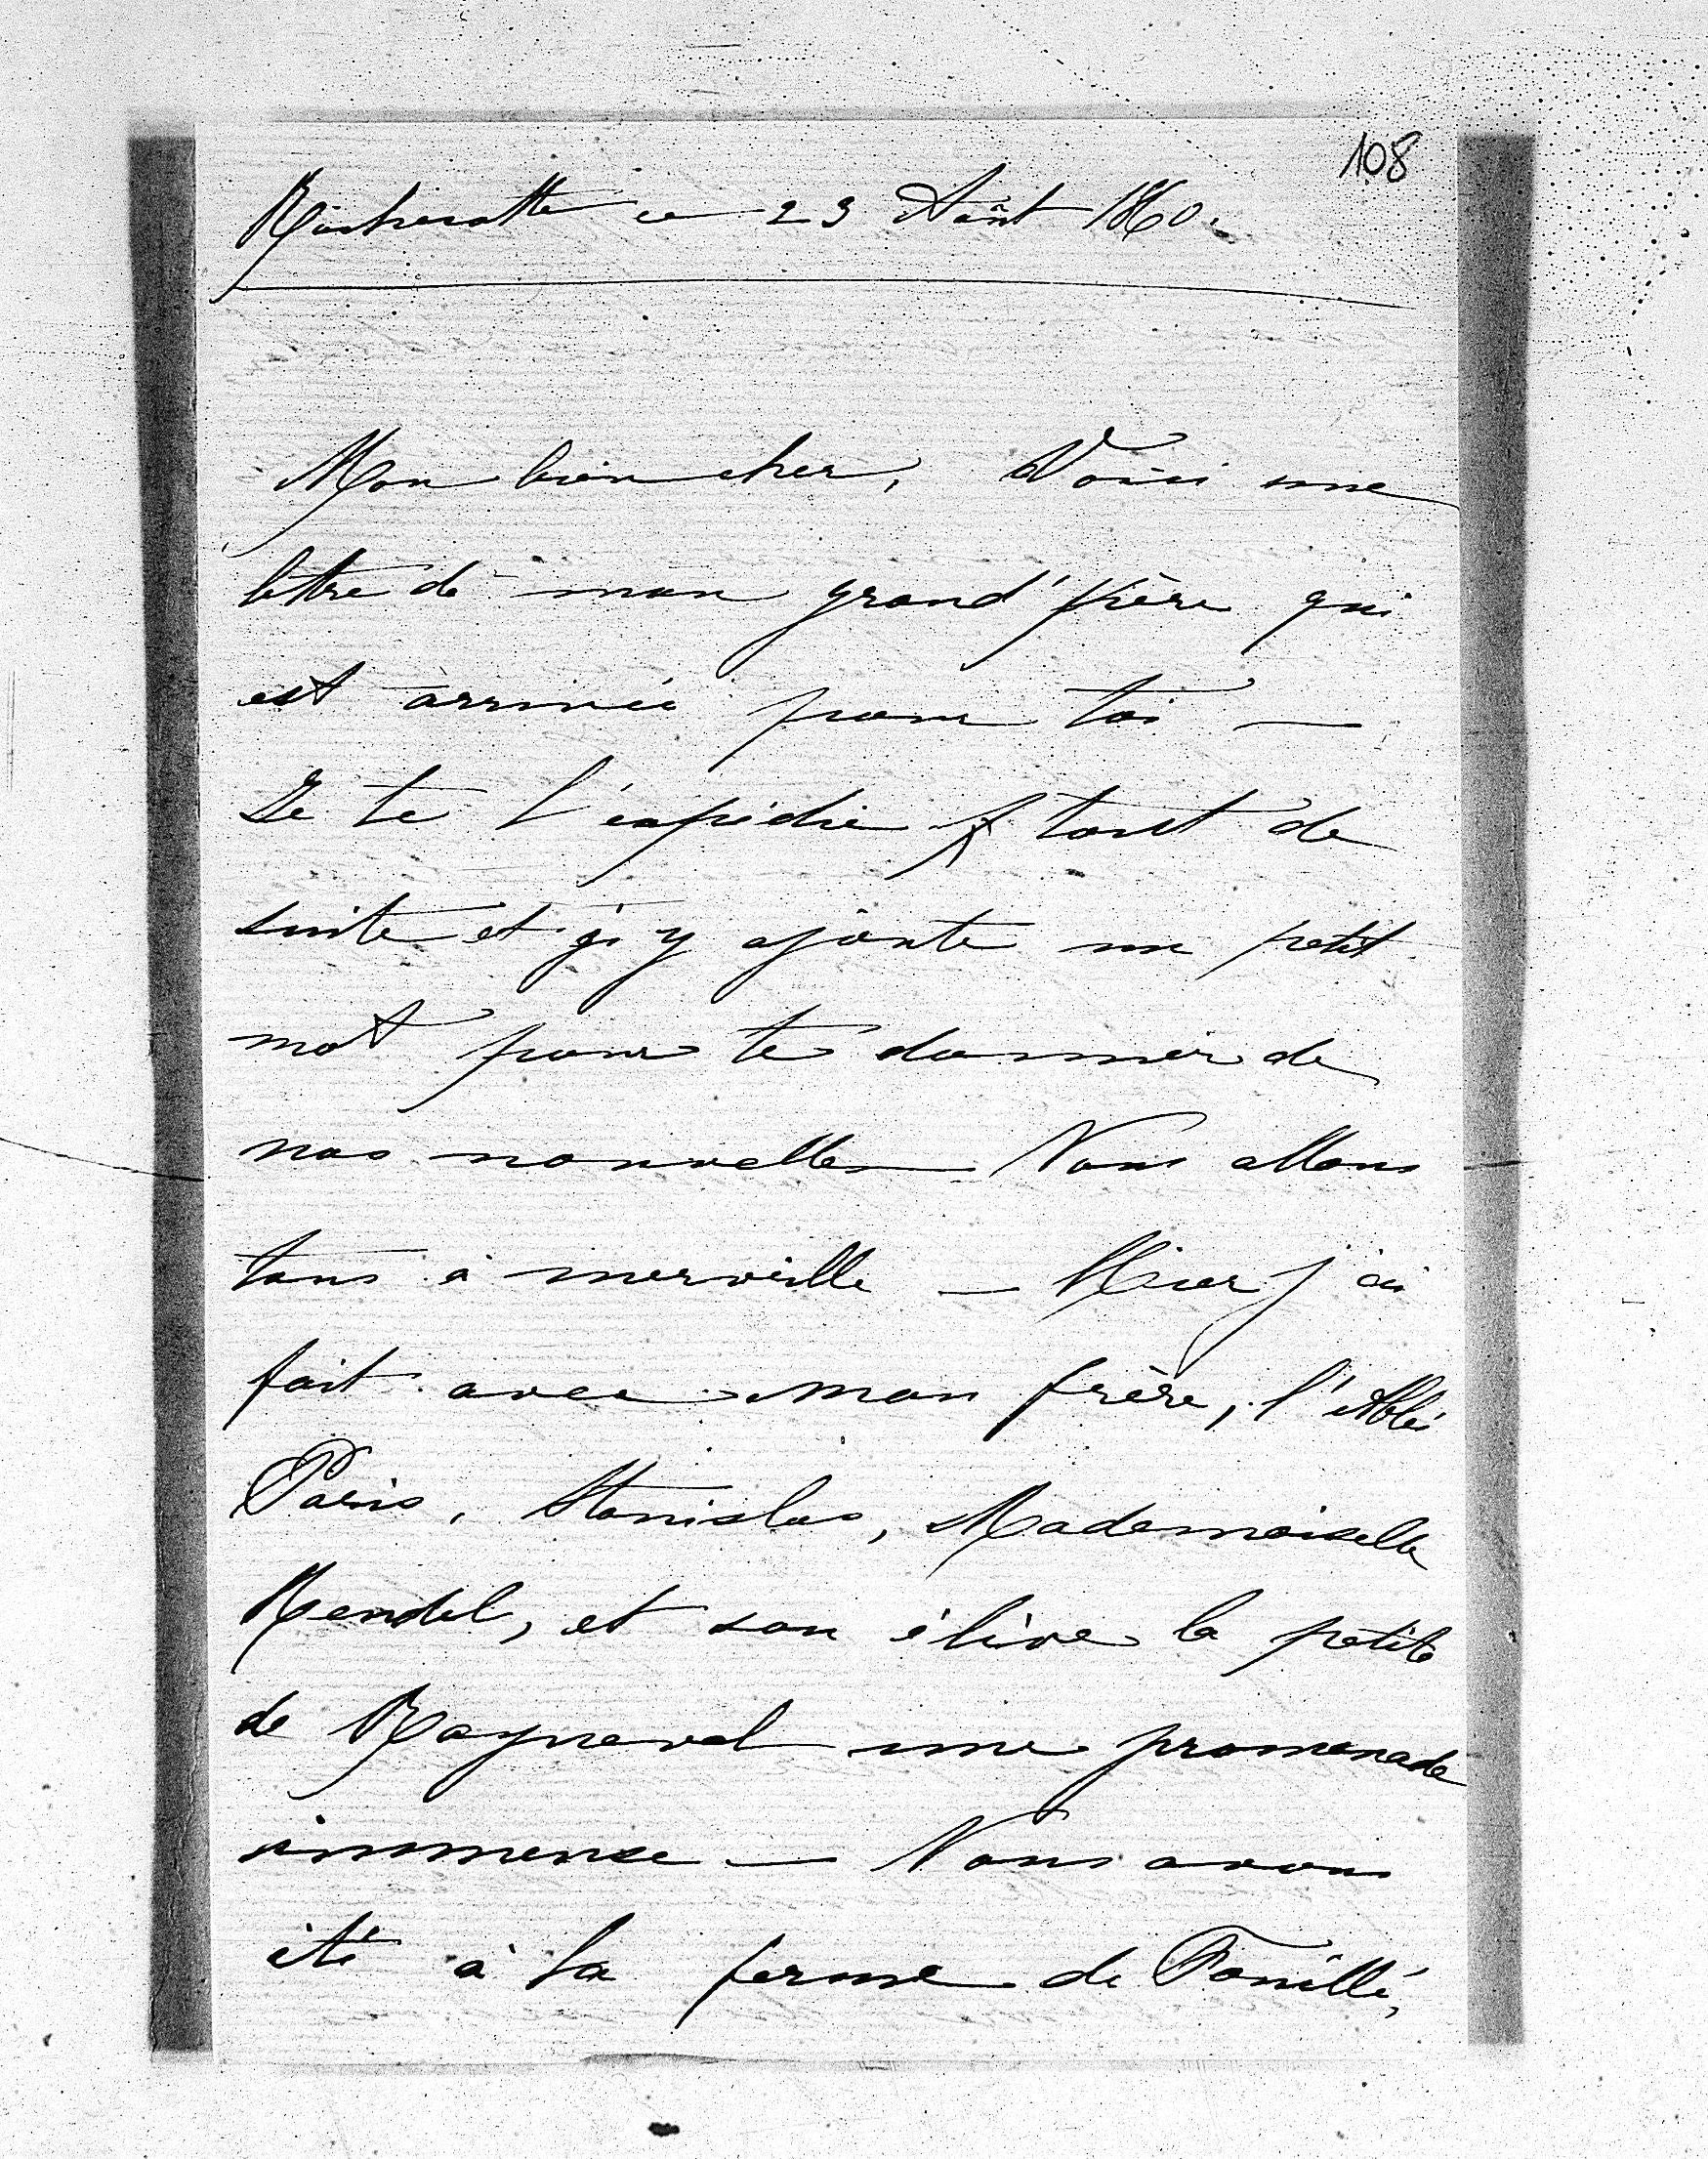 108
Rochecotte ce 23 Août 1860.
Mon bien cher, Voici une
lettre de mon grand'père qui
est arrivée pour toi —
Je te l'expédie tout de
suite et j'y ajoute un petit
mot pour te donner de
nos nouvelles. Nous allons
tous à merveille — Hier j'ai
fait avec mon frère, l'Abbé
Paris, Stanislas, Mademoiselle
Mendel, et son élève la petite
de Rayneval une promenade
immense — Nous avons
été à la ferme de Fouillé,